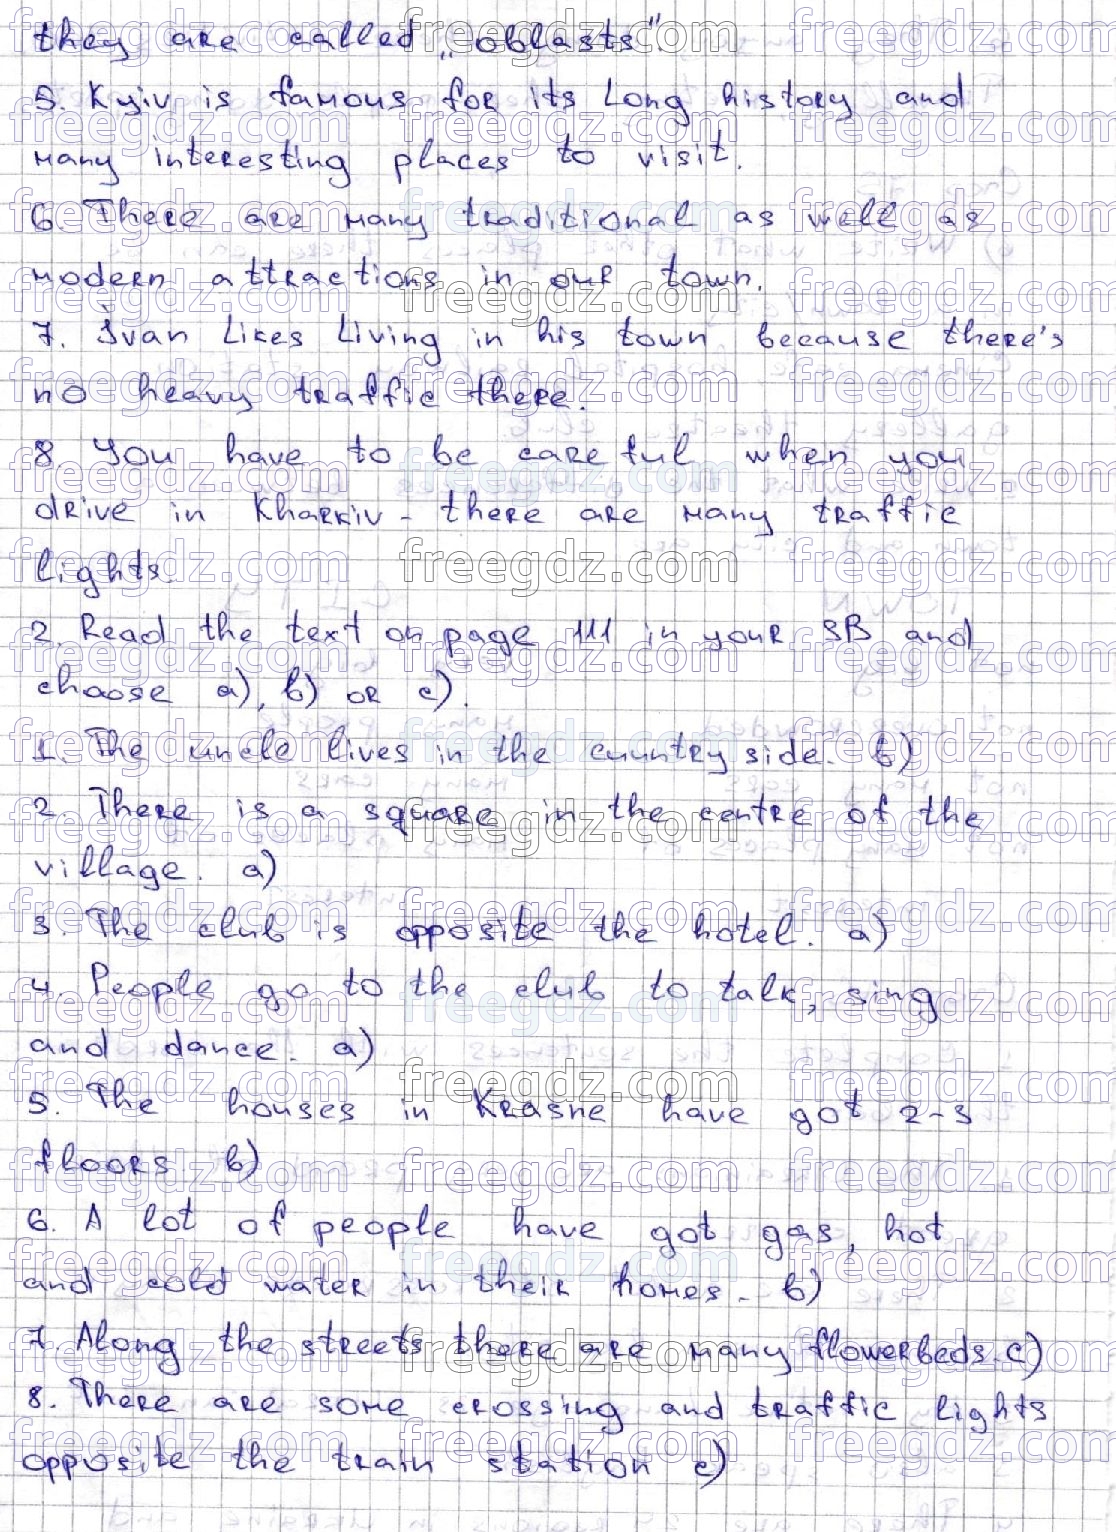 they are called „oblasts".
5. Kyiv is famous for its long history and
many interesting places to visit.
6. There are many traditional as well as
modern attractions in our town.
7. Ivan likes living in his town because there's
no heavy traffic there.
8. You have to be careful when you
drive in Kharkiv - there are many traffic
lights.
2. Read the text on page 111 in your SB and
choose a), b) or c).
1. The uncle lives in the countryside. b)
2. There is a square in the centre of the
village. a)
3. The club is opposite the hotel. a)
4. People go to the club to talk, sing
and dance. a)
5. The houses in Krasne have got 2-3
floors b)
6. A lot of people have got gas, hot
and cold water in their homes. b)
7. Along the streets there are many flowerbeds. c)
8. There are some crossing and traffic lights
opposite the train station c)
freegdz.com